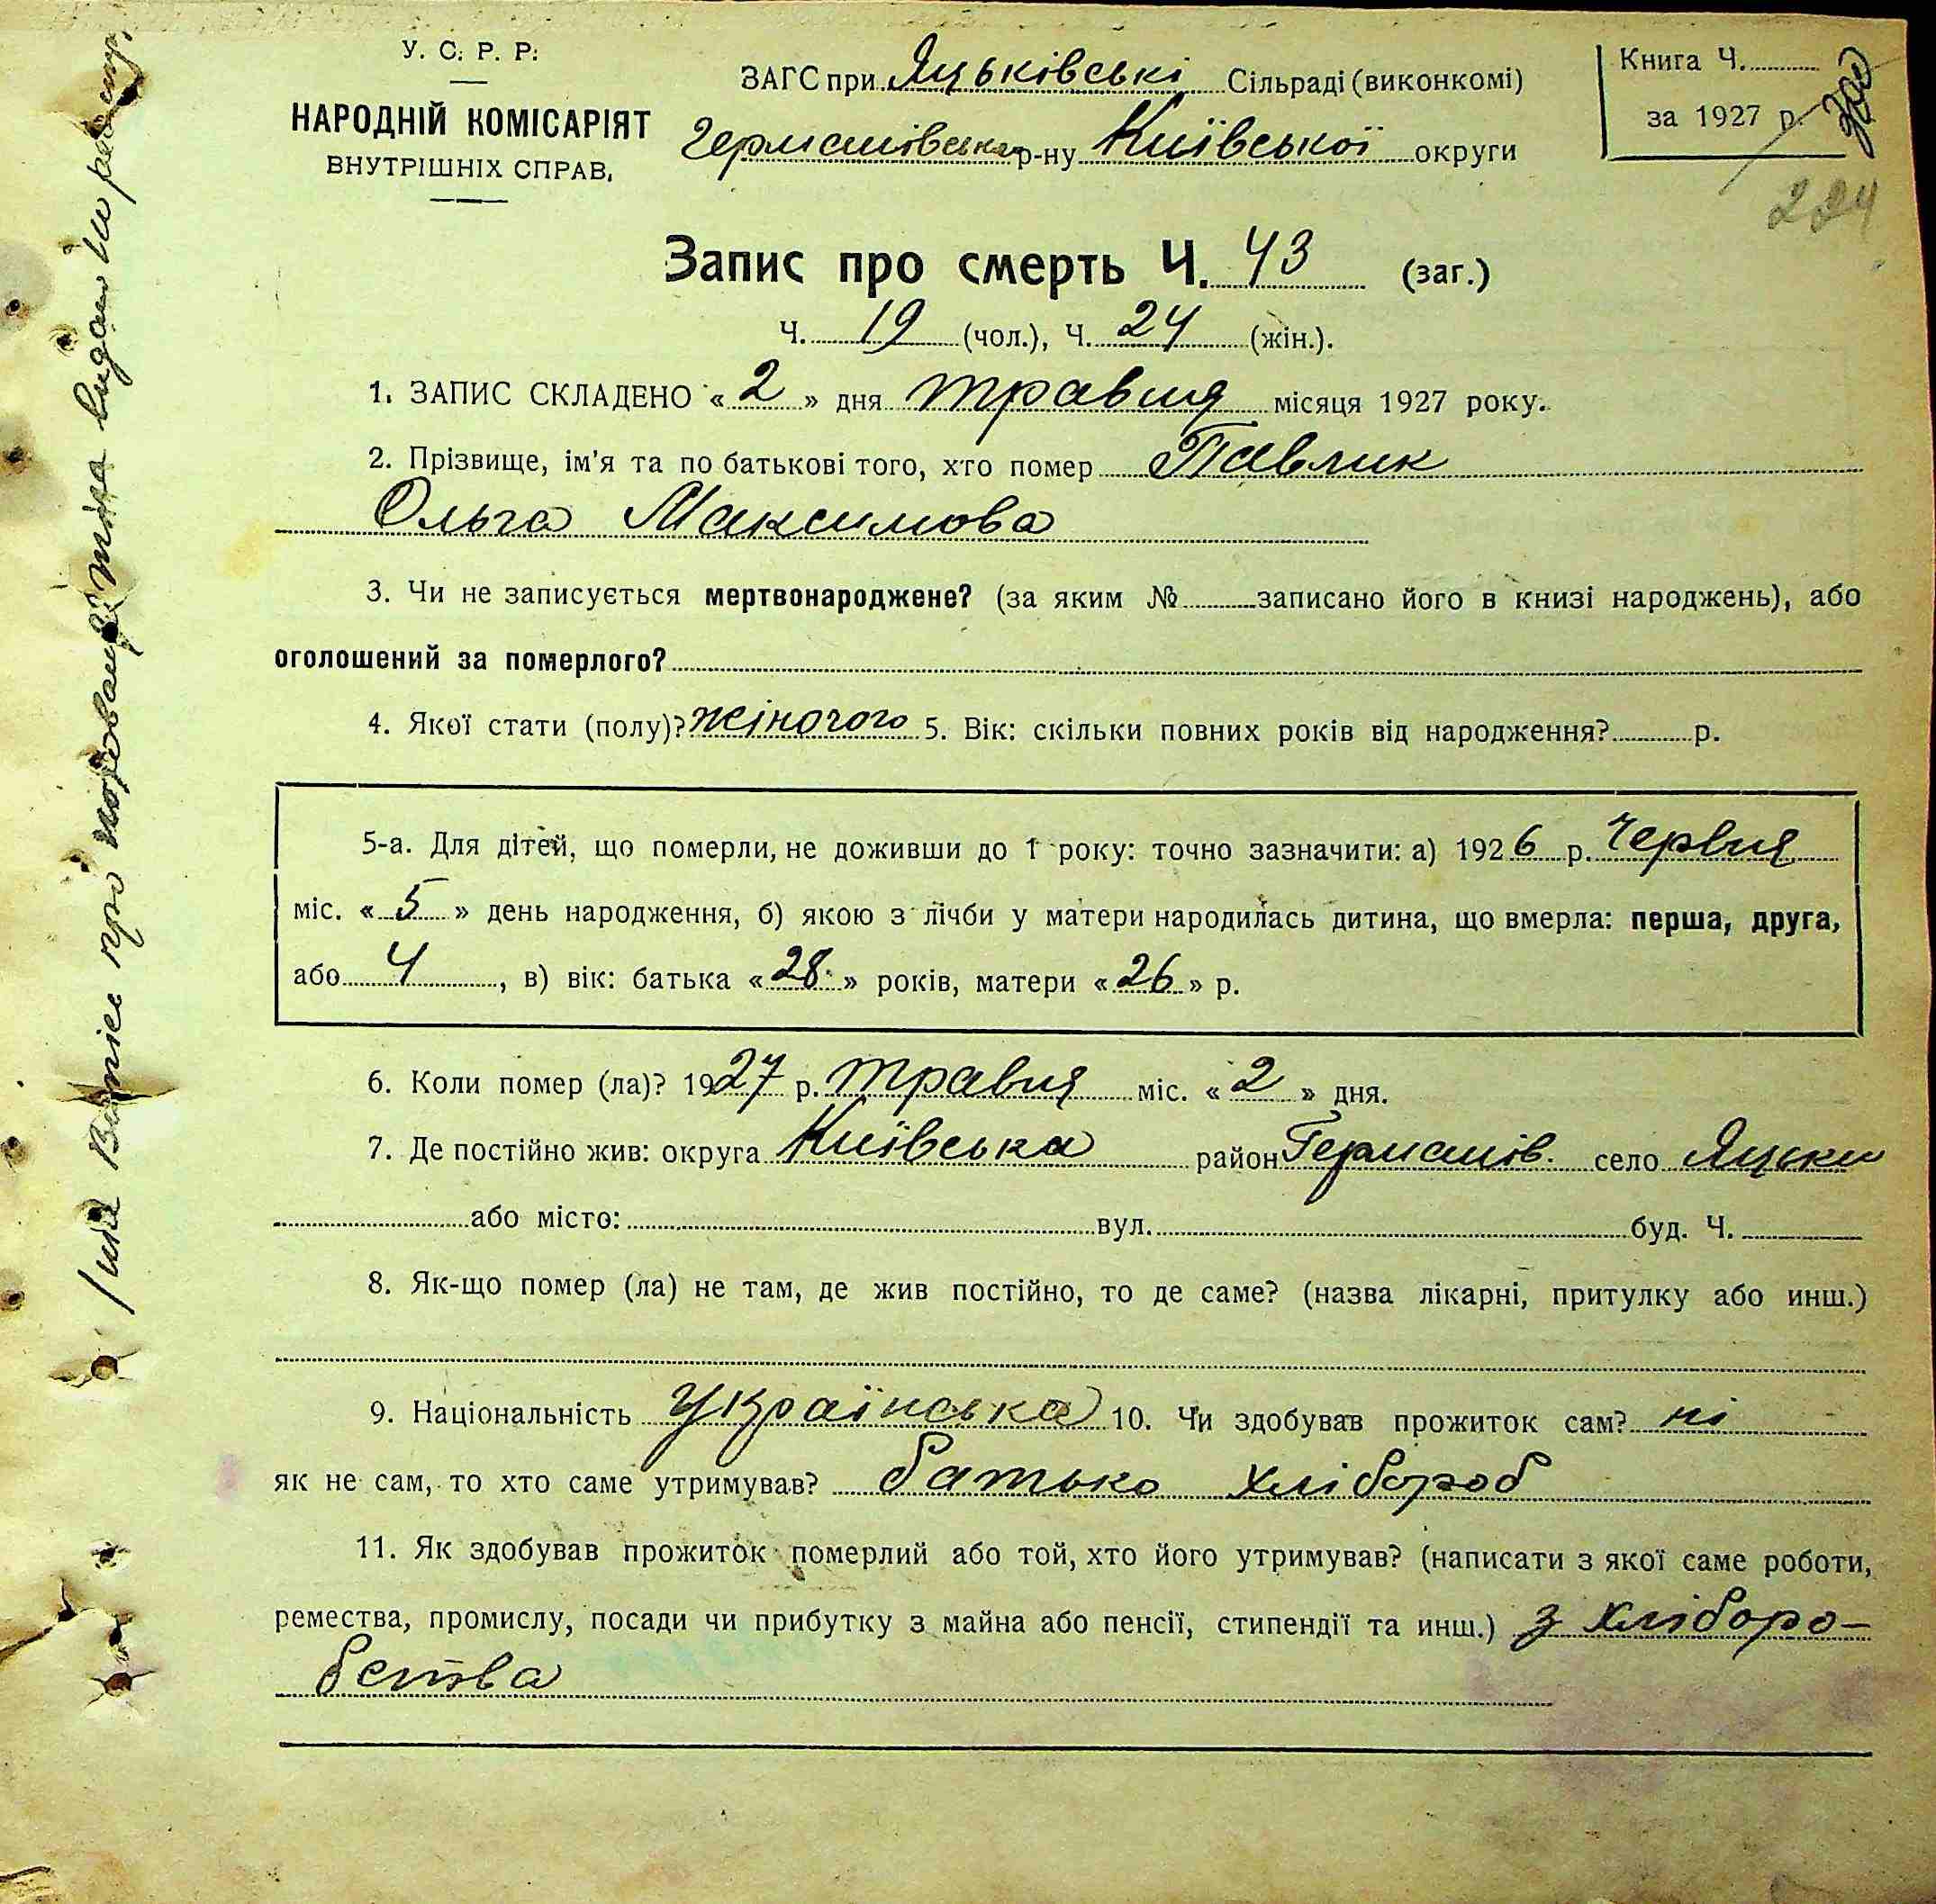 У. С. Р. Р.
НАРОДНІЙ КОМІСАРІЯТ
ВНУТРІШНІХ СПРАВ,
ЗАГС при Яцьківські Сільраді (виконкомі)
Германівська р-ну Київської округи
Книга Ч.
за 1927 р.
224
Запис про смерть Ч. 43 (заг.)
Ч. 19 (чол.), Ч. 24 (жін.).
1. ЗАПИС СКЛАДЕНО « 2 » дня травня місяця 1927 року.
2. Прізвище, ім'я та по батькові того, хто помер Павлик
Ольга Максимова
3. Чи не записується мертвонароджене? (за яким № записано його в книзі народжень), або
оголошений за померлого?
4. Якої стати (полу)? жіночого 5. Вік: скільки повних років від народження? р.
5-а. Для дітей, що померли, не доживши до 1 року: точно зазначити: а) 1926 р. Червня
міс. « 5 » день народження, б) якою з лічби у матери народилась дитина, що вмерла: перша, друга,
або 4, в) вік: батька « 28 » років, матери « 26 » р.
6. Коли помер (ла)? 1927 р. травня міс. « 2 » дня.
7. Де постійно жив: округа Київська район Германів. село Яцьки
або місто: вул. буд. Ч.
8. Як-що помер (ла) не там, де жив постійно, то де саме? (назва лікарні, притулку або инш.)
9. Національність Українська 10. Чи здобував прожиток сам? ні
як не сам, то хто саме утримував? батько хлібороб
11. Як здобував прожиток померлий або той, хто його утримував? (написати з якої саме роботи,
ремества, промислу, посади чи прибутку з майна або пенсії, стипендії та инш.) з хліборо-
бства